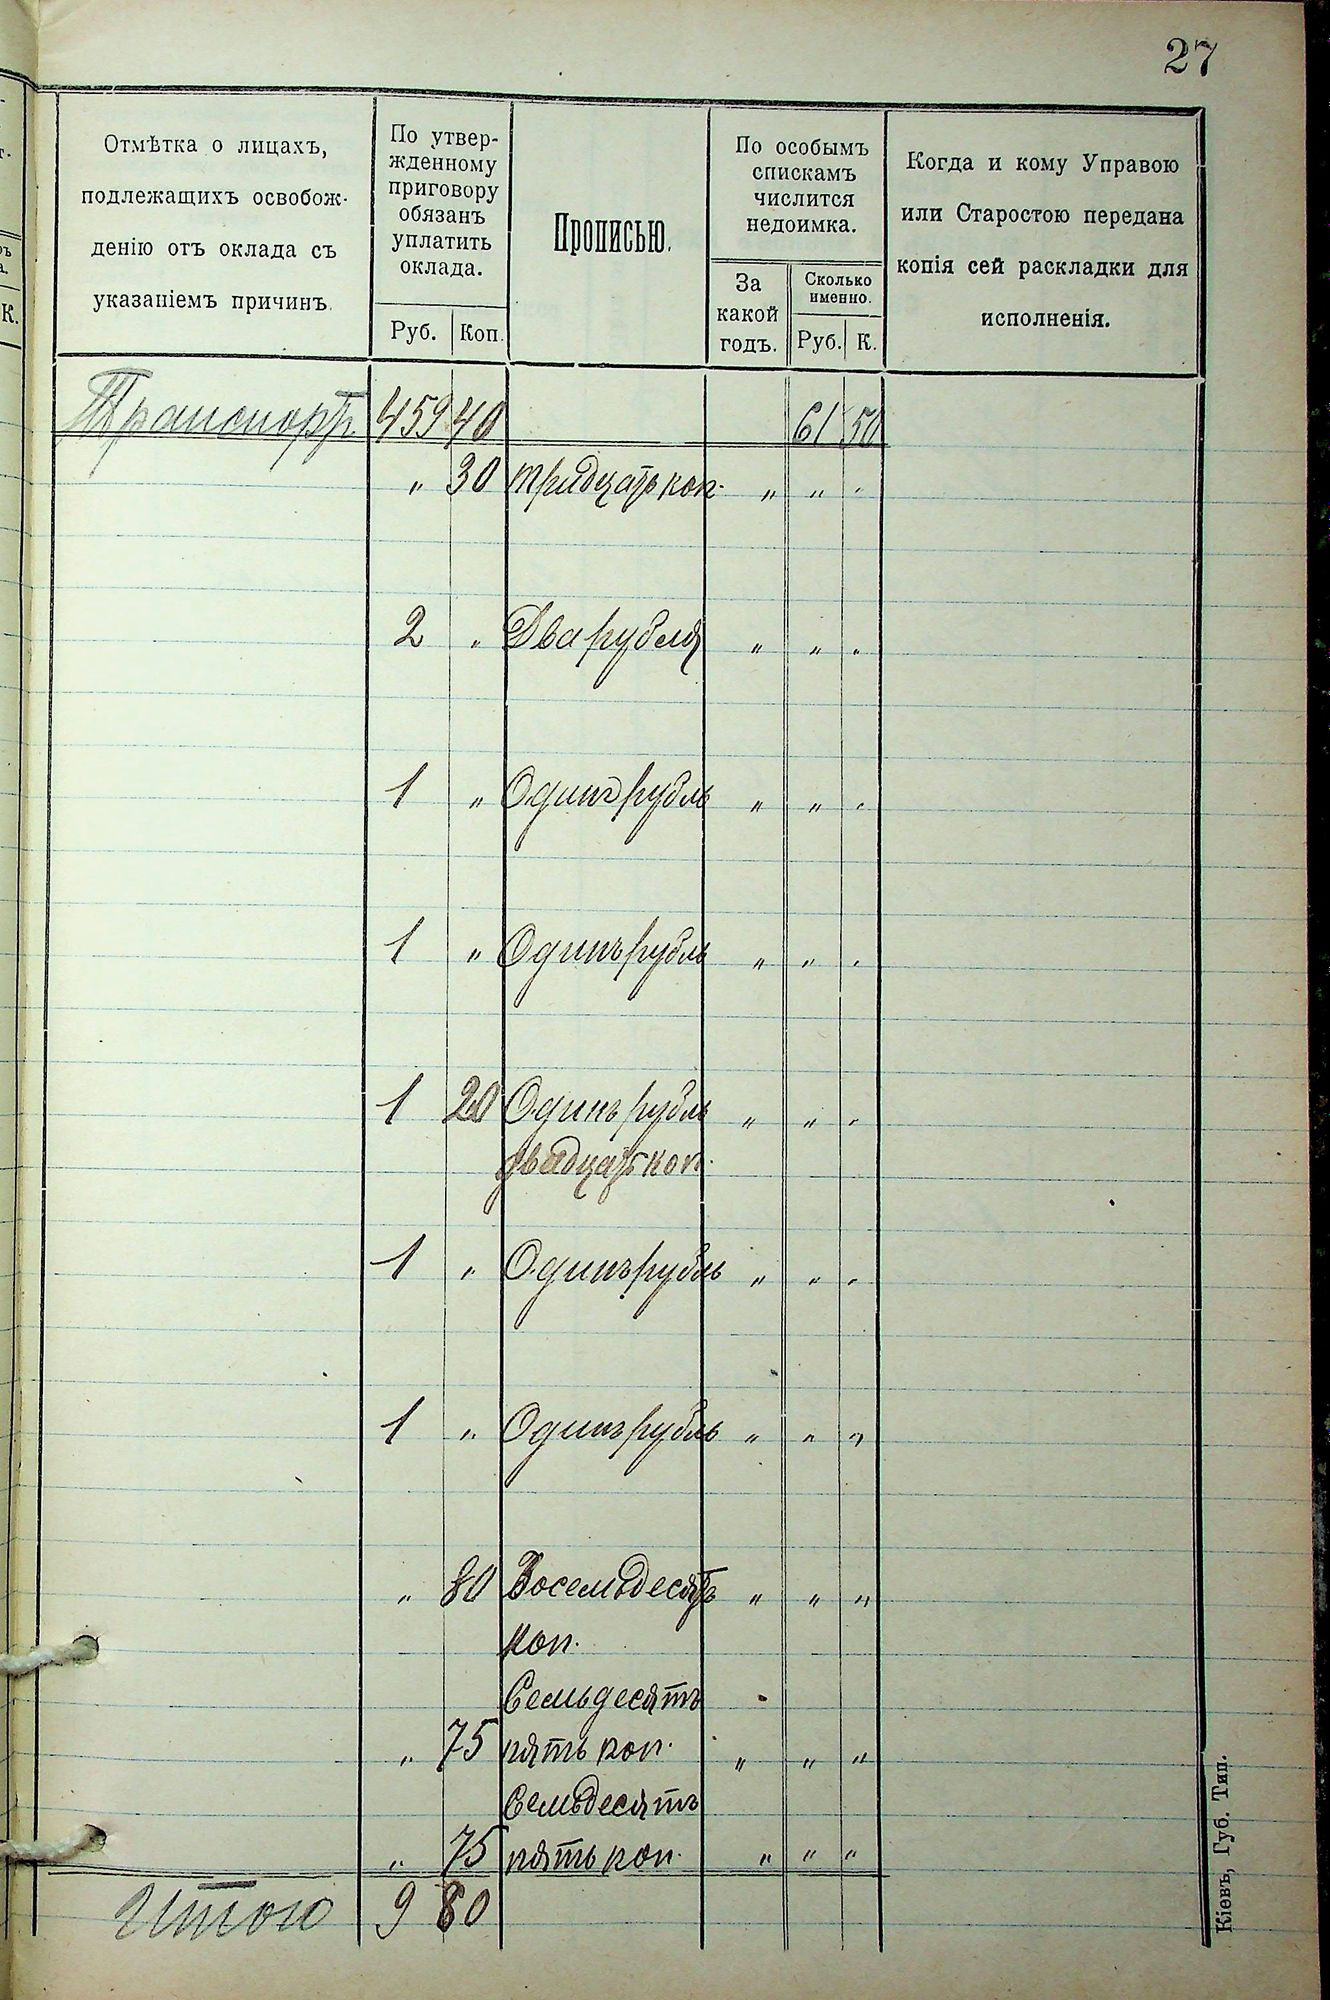 27
Отмѣтка о лицахъ,
подлежащихъ освобож-
денію отъ оклада съ
указаніемъ причинъ.
По утвер-
жденному
приговору
обязанъ
уплатить
оклада.
Руб. Коп.
Прописью.
По особымъ
спискамъ
числится
недоимка.
За
какой
годъ.
Сколько
именно.
Руб. К.
Когда и кому Управою
или Старостою передана
копія сей раскладки для
исполненія.
Транспортъ 459 40 61 50
" 30 тридцать коп. " " "
2 " Два рубля " " "
1 " Одинъ рубль " " "
1 " Одинъ рубль " " "
1 20 Одинъ рубль " " "
двадцать коп.
1 " Одинъ рубль " " "
1 " Одинъ рубль " " "
" 80 Восемьдесятъ " " "
коп.
Семьдесятъ
" 75 пять коп. " " "
Семьдесятъ
" 75 пять коп. " " "
Итого 9 80
Кіевъ, Губ. Тип.
К.